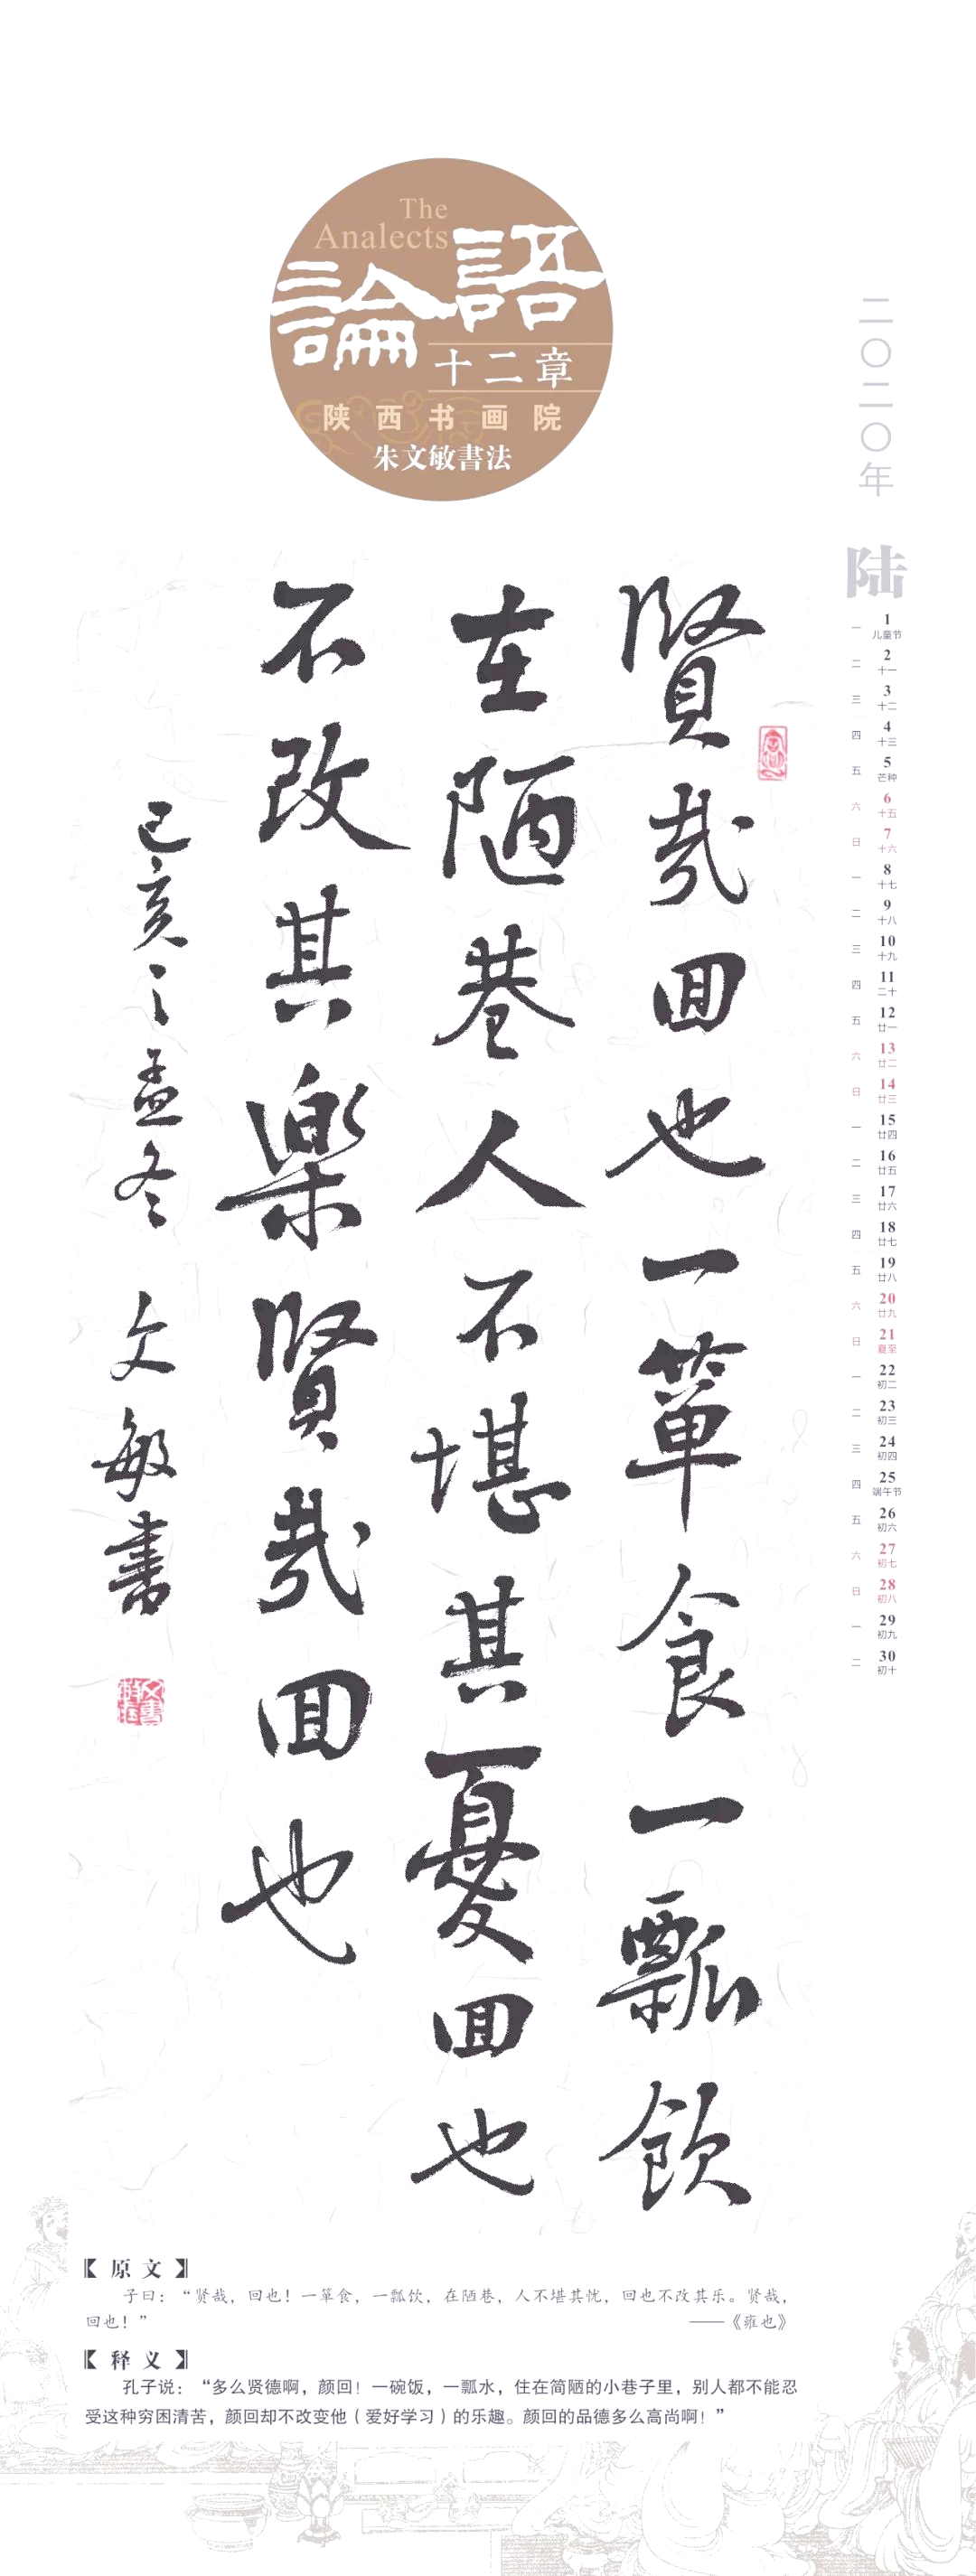 The
Analects
論語
十二章
陕西书画院
朱文敏書法
二〇二〇年
陆
一 1 儿童节
二 2 十一
三 3 十二
四 4 十三
五 5 芒种
六 6 十五
日 7 十六
一 8 十七
二 9 十八
三 10 十九
四 11 二十
五 12 廿一
六 13 廿二
日 14 廿三
一 15 廿四
二 16 廿五
三 17 廿六
四 18 廿七
五 19 廿八
六 20 廿九
日 21 夏至
一 22 初二
二 23 初三
三 24 初四
四 25 端午节
五 26 初六
六 27 初七
日 28 初八
一 29 初九
二 30 初十
賢哉回也一簞食一瓢飲
在陋巷人不堪其憂回也
不改其樂賢哉回也
己亥之孟冬 文敏書
【原文】
子曰：“贤哉，回也！一箪食，一瓢饮，在陋巷，人不堪其忧，回也不改其乐。贤哉，
回也！” ——《雍也》
【释义】
孔子说：“多么贤德啊，颜回！一碗饭，一瓢水，住在简陋的小巷子里，别人都不能忍
受这种穷困清苦，颜回却不改变他（爱好学习）的乐趣。颜回的品德多么高尚啊！”